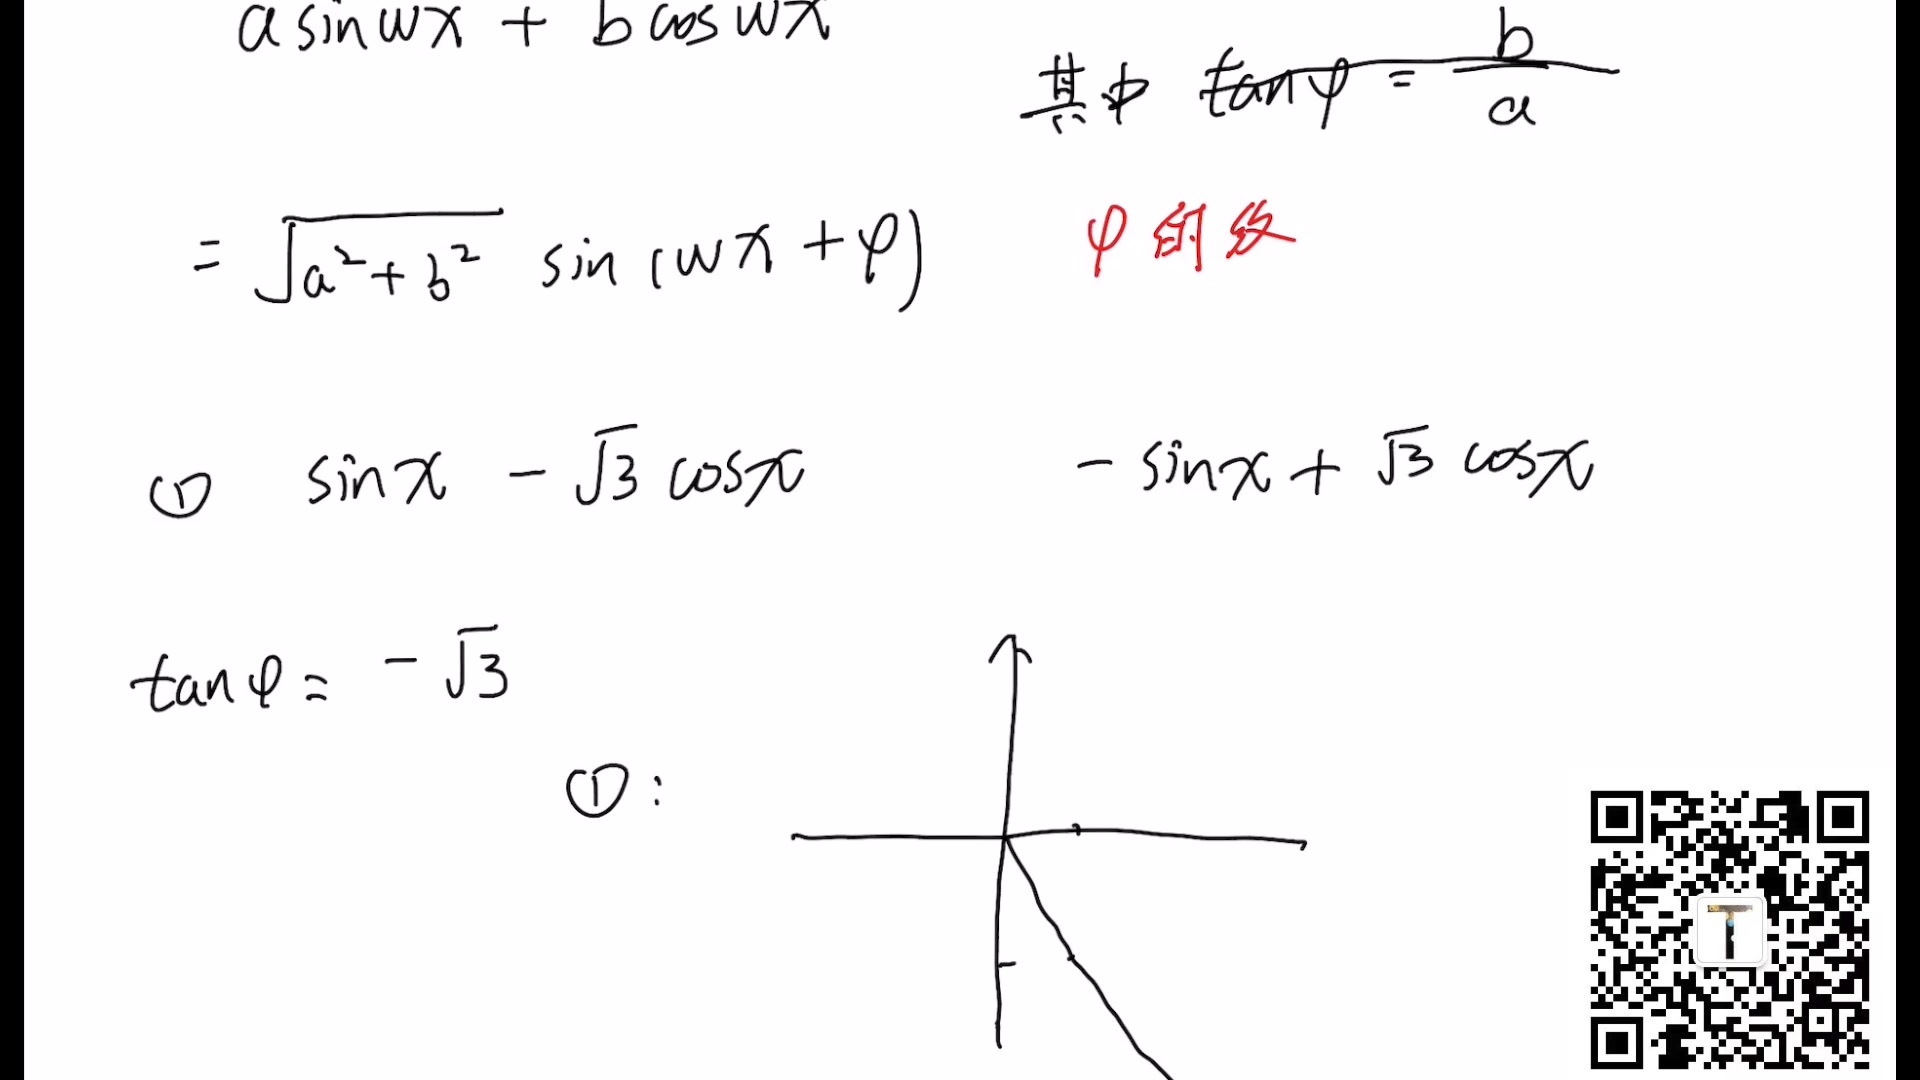 a sin wx + b cos wx
其中 tanφ = b/a
= √(a²+b²) sin (wx + φ)
φ 的终
① sin x - √3 cos x
- sin x + √3 cos x
tan φ = - √3
① :
T